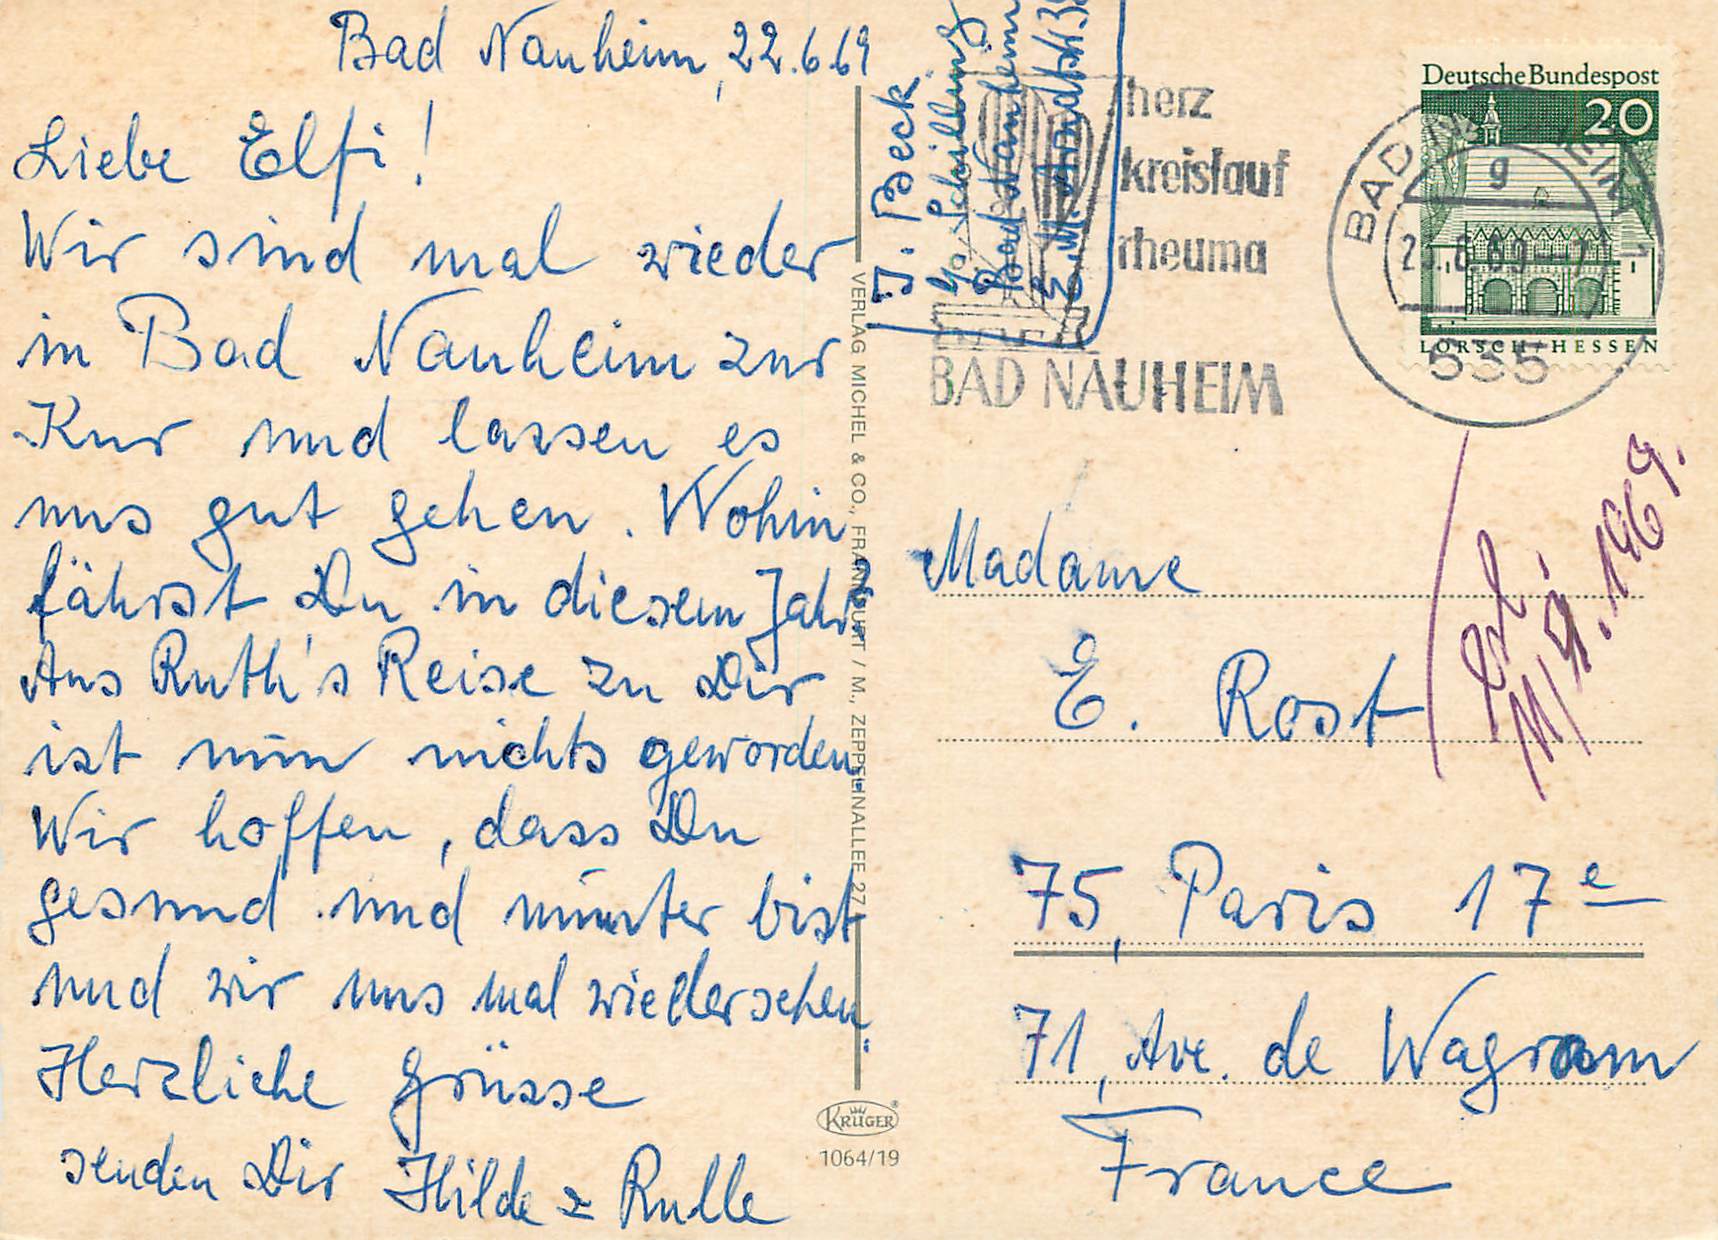 Bad Nauheim, 22.6.69
Liebe Elfi!
Wir sind mal wieder
in Bad Nauheim zur
Kur und lassen es
uns gut gehen. Wohin
fährst Du in diesem Jahr?
Aus Ruth's Reise zu Dir
ist nun nichts geworden.
Wir hoffen, dass Du
gesund und munter bist
und wir uns mal wiedersehen.
Herzliche Grüsse
senden Dir Hilde & Rulle
J. Beck
c/o Schilling
Bad Nauheim
herz
kreislauf
rheuma
BAD NAUHEIM
Deutsche Bundespost
20
LORSCH / HESSEN
g
635
VERLAG MICHEL & CO., FRANKFURT / M., ZEPPELINALLEE 27
Madame
E. Rost
75, Paris 17e
71, Ave. de Wagram
France
KRÜGER
1064/19